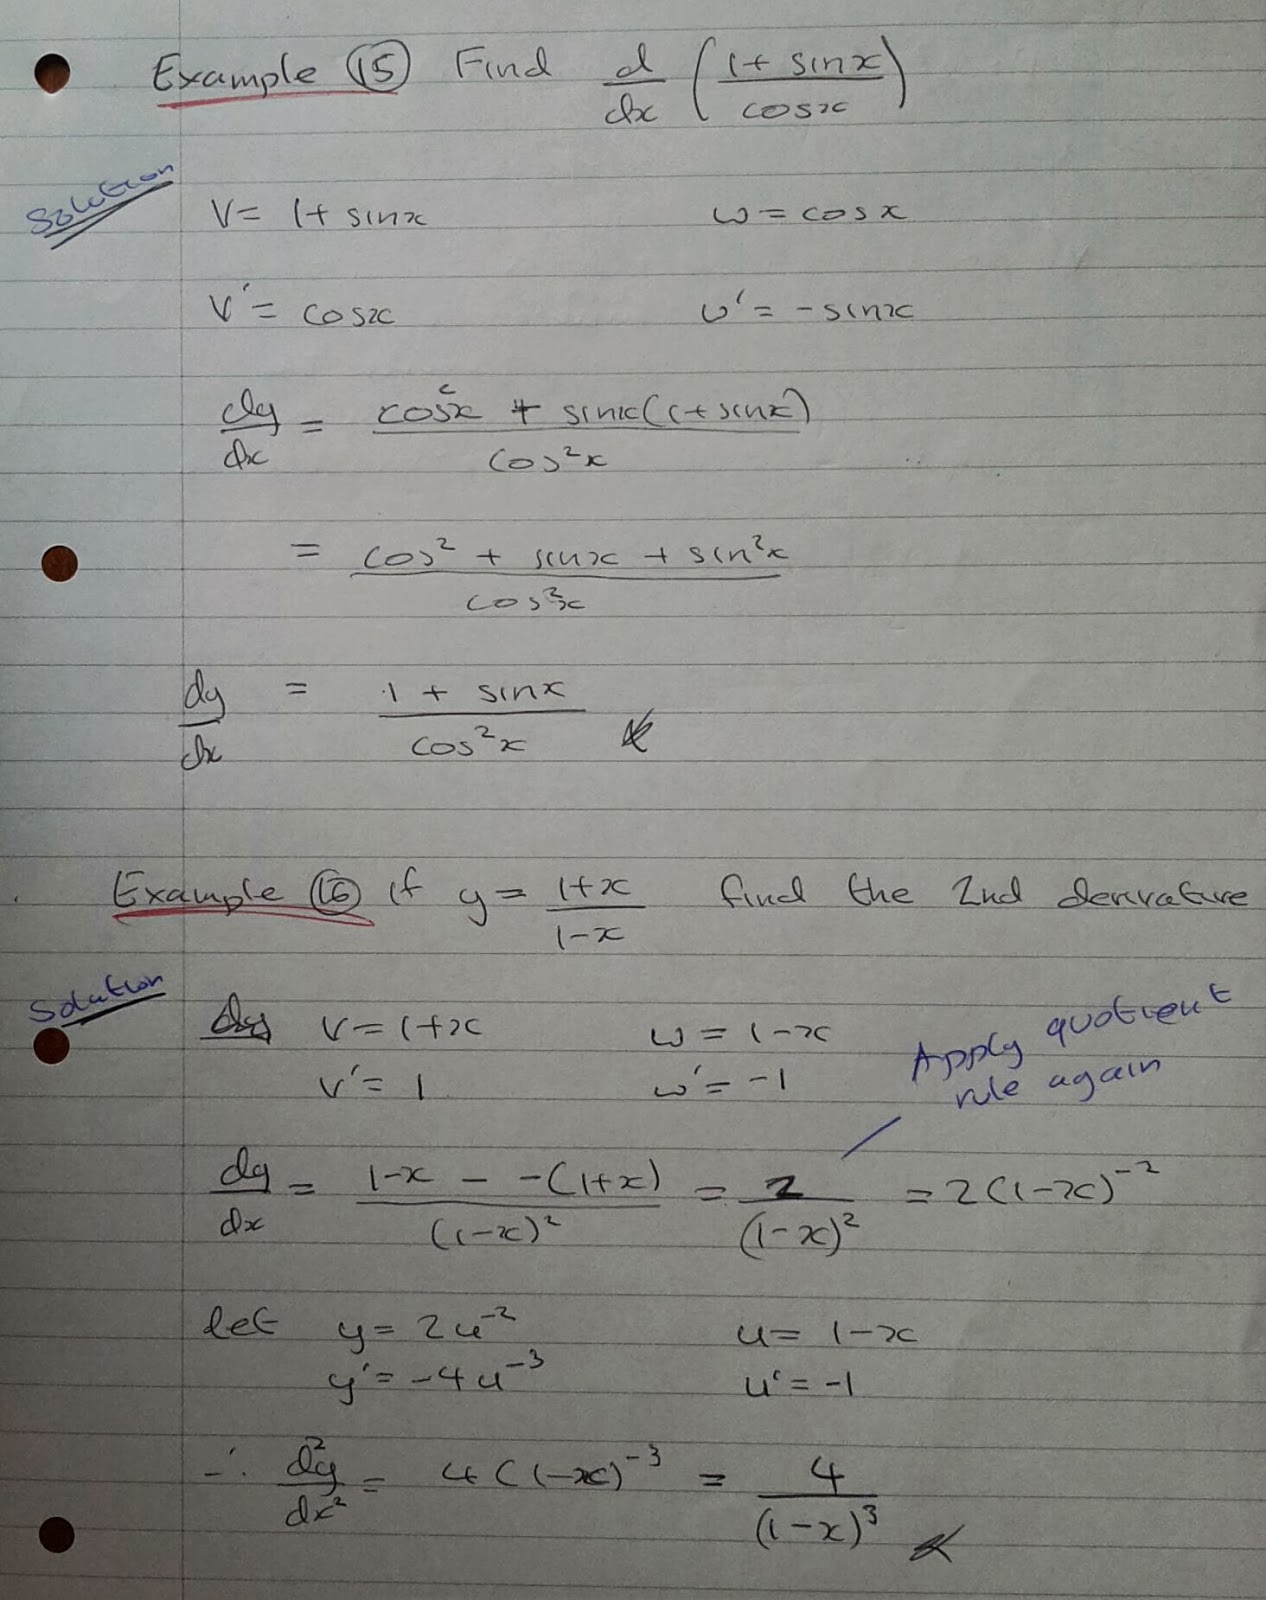 Example 15 Find d/dx ( (1 + sinx) / cosx )
Solution
V = 1 + sinx    w = cosx
V' = cosx    w' = -sinx
dy/dx = (cos²x + sinx(1+sinx)) / cos²x
= (cos² + sinx + sin²x) / cos²x
dy/dx = (1 + sinx) / cos²x
Example 16 if y = (1+x) / (1-x) find the 2nd derivative
Solution
V = 1+x    w = 1-x
V' = 1    w' = -1
Apply quotient
rule again
dy/dx = (1-x - -(1+x)) / (1-x)² = 2 / (1-x)² = 2(1-x)⁻²
let y = 2u⁻²    u = 1-x
y' = -4u⁻³    u' = -1
∴ d²y/dx² = 4(1-x)⁻³ = 4 / (1-x)³